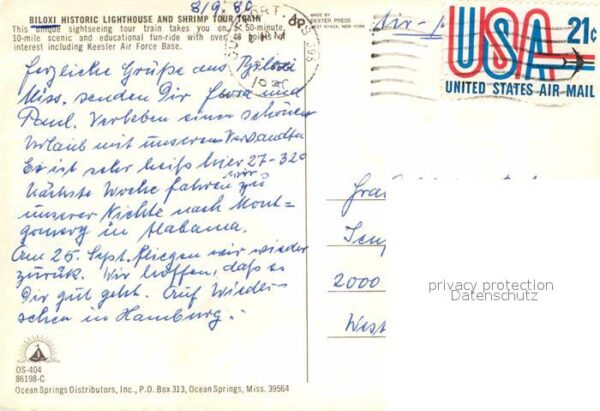 8/9. 80
BILOXI HISTORIC LIGHTHOUSE AND SHRIMP TOUR TRAIN
This unique sightseeing tour train takes you on 50-minute,
10-mile scenic and educational fun-ride with over points of
interest including Keesler Air Force Base.
MADE BY
DEXTER PRESS
WEST NYACK, NEW YORK
GULFPORT
Air-
USA 21c
UNITED STATES AIR MAIL
Herzliche Grüße aus Biloxi
Miss. senden Dir und
Paul. Verleben einen schönen
Urlaub mit unseren Verwandten
Es ist sehr heiß hier 27-32°
Nächste Woche fahren wir zu
unserer Nichte nach Mont-
gomery in Alabama.
Am 25. Sept. fliegen wir wieder
zurück. Wir hoffen, daß es
Dir gut geht. Auf Wieder-
sehen in Hamburg.
2000
West
privacy protection
Datenschutz
OS-404
86198-C
Ocean Springs Distributors, Inc., P.O. Box 313, Ocean Springs, Miss. 39564